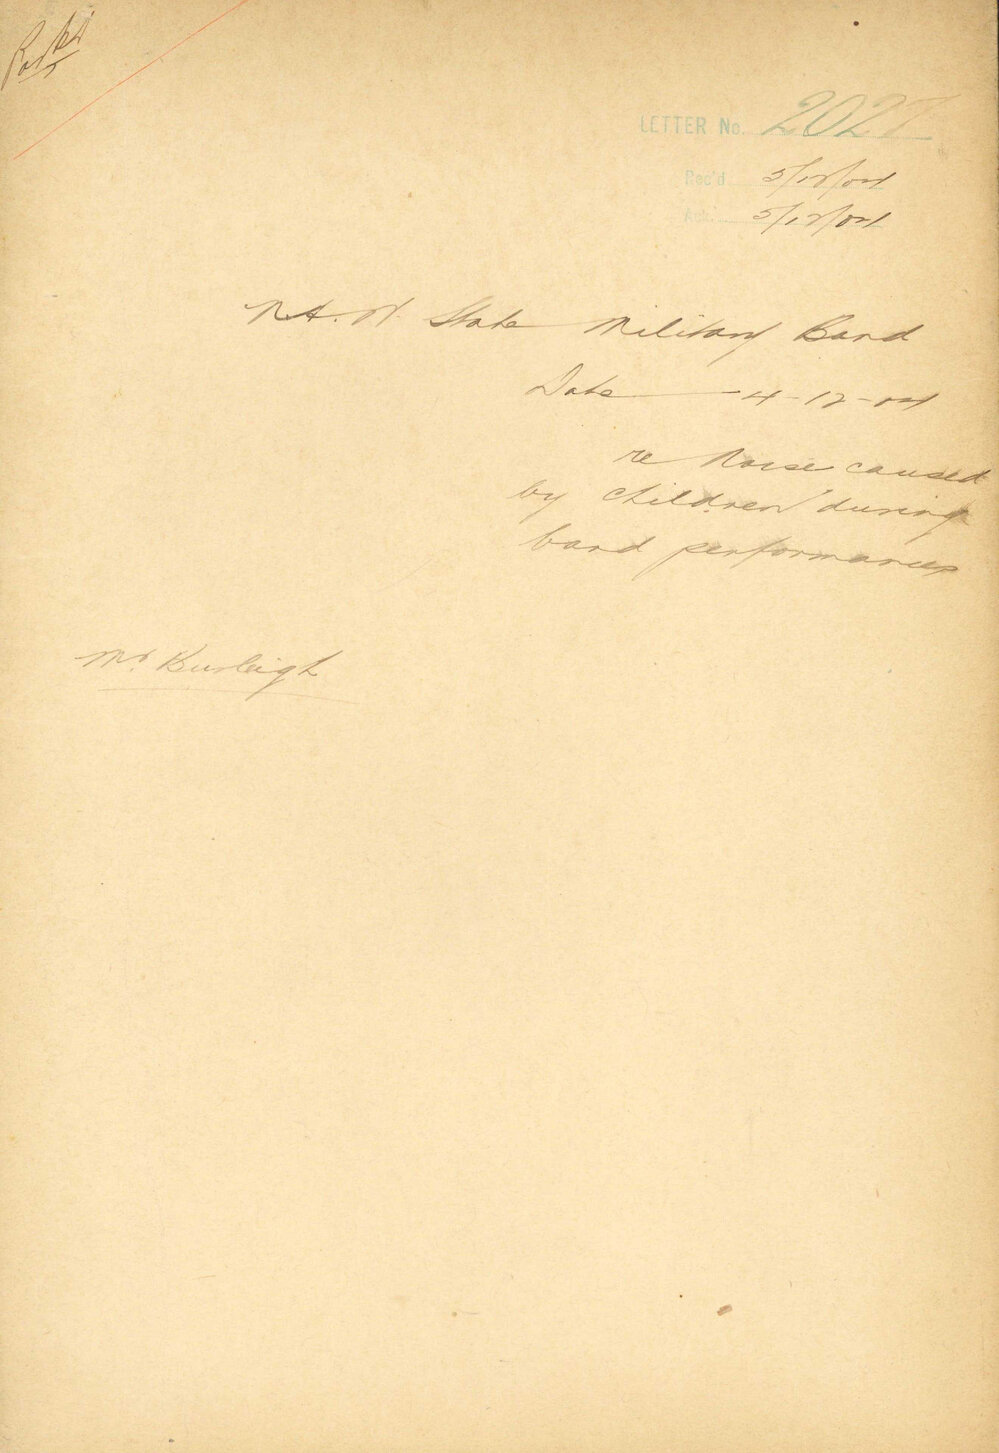 LETTER No. 2027
Rec'd 5/12/04
Ack. 5/12/04
State Military Band
Date - 4-12-04
re Noise caused
by children during
band performances
Mr Burleigh